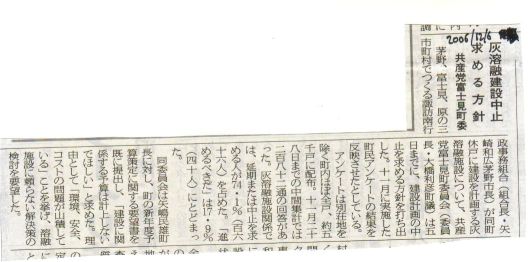 2006/12/6
灰溶融建設中止
求める方針
共産党富士見町委
茅野、富士見、原の三
市町村でつくる諏訪南行
政事務組合(組合長・矢
崎和広茅野市長)が同町
休戸に建設を計画する灰
溶融施設について、共産
党富士見町委員会(委員
長・大橋利彦町議)は五
日までに、建設計画の中
止を求める方針を打ち出
した。十一月に実施した
町民アンケートの結果を
反映させたとしている。
アンケートは別荘地を
除く町内ほぼ全戸、約五
千戸に配布。十一月二十
八日までの中間集計では
二百八十二通の回答があ
った。灰溶融施設関係で
は、延期または中止を求
める人が74・1%(百六
十六人)を占めた。「進
めるべきだ」は17・9%
(四十人)にとどまっ
た。
同委員会は矢嶋民雄町
長に対し、町の新年度予
算策定に関する要望書を
既に提出し、「建設に関
係する予算は計上しない
でほしい」と求めた。理
由として「環境、安全、
コストの問題が山積して
いる」ことを挙げ、溶融
施設に頼らない解決策の
検討を要望した。